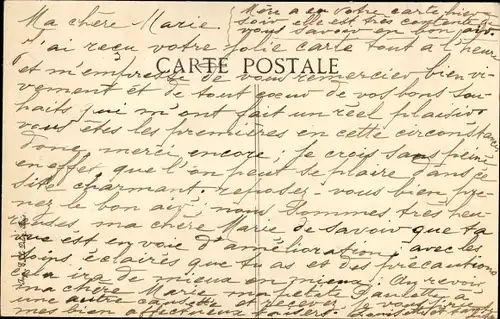 Ma chère Marie
Méu a eu votre carte hier
soir elle est très contente de
vous savoir en bon air.
J'ai reçu votre jolie carte tout à l'heure
CARTE POSTALE
et m'empresse de vous remercier bien vi-
vement et de tout cœur de vos bons sou-
haits qui m'ont fait un réel plaisir
vous êtes les premières en cette circonstance
donc merci encore; je crois sans peine
en effet que l'on peut se plaire dans ce
site charmant. reposez-vous bien pre-
nez le bon air, nous sommes très heu-
reuses ma chère Marie de savoir que ta
vue est en voie d'amélioration, avec les
soins éclairés que tu as et des précautions
cela ira de mieux en mieux. Au revoir
ma chère Marie ma petite Paulette à
une autre causette et recevez à vous
mes bien affectueux baisers.